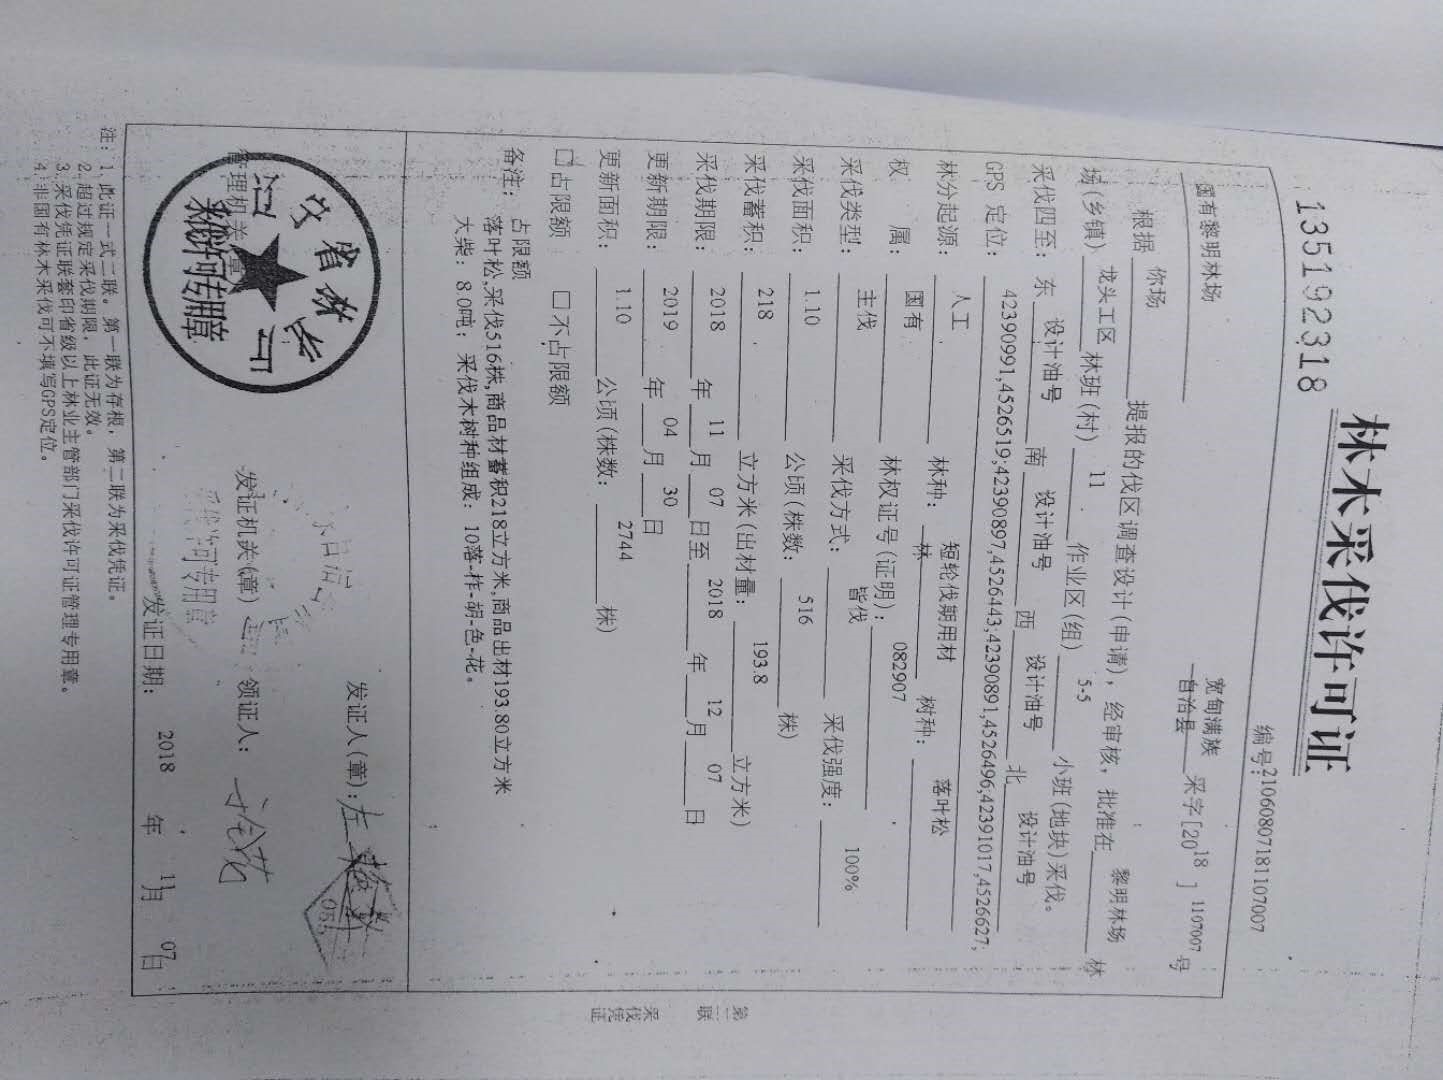 林木采伐许可证
编号：2106080718110700​7
135192318
宽甸满族自治县 采字[2018] 1107007号
国有黎明林场
根据 你场 提报的伐区调查设计(申请)，经审核，批准在 黎明林场 林
场(乡镇) 龙头工区 林班(村) 11 作业区(组) 5-5 小班(地块)采伐。
采伐四至： 东 设计油号 南 设计油号 西 设计油号 北 设计油号
GPS 定位： 42390991,4526519;42390897,4526443;42390891,4526496;42391017,4526627;
林分起源： 人工 林种： 短轮伐期用材林 树种： 落叶松
权属： 国有 林权证号(证明)： 082907
采伐类型： 主伐 采伐方式： 皆伐 采伐强度： 100%
采伐面积： 1.10 公顷(株数： 516 株)
采伐蓄积： 218 立方米(出材量： 193.8 立方米)
采伐期限： 2018 年 11 月 07 日至 2018 年 12 月 07 日
更新期限： 2019 年 04 月 30 日
更新面积： 1.10 公顷(株数： 2744 株)
□占限额 □不占限额
备注： 占限额
落叶松,采伐516株,商品材蓄积218立方米,商品出材193.80立方米
大柴：8.0吨；采伐木树种组成：10落-柞-胡-色-花。
发证人(章)：左
055
管理机关(章) 发证机关(章) 领证人：
辽宁省林业厅
采伐许可专用章
采伐许可专用章
发证日期： 2018 年 11月 07日
注：1. 此证一式二联。第一联为存根，第二联为采伐凭证。
2. 超过规定采伐期限，此证无效。
3. 采伐凭证联套印省级以上林业主管部门采伐许可证管理专用章。
4. 非国有林木采伐可不填写GPS定位。
第二联 采伐凭证